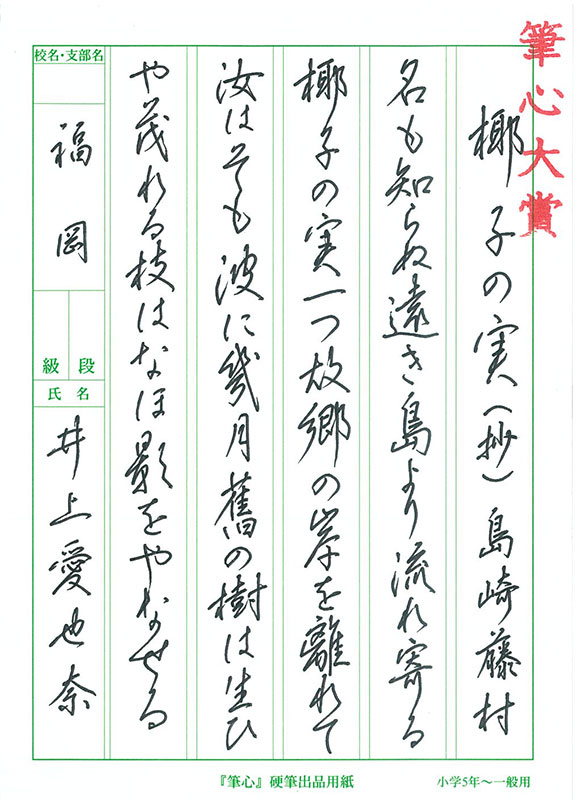 筆心大賞
椰子の実(抄)島崎藤村
名も知らぬ遠き島より流れ寄る
椰子の実一つ故郷の岸を離れて
汝はそも波に幾月舊の樹は生ひ
や茂れる枝はなほ影をやなせる
校名・支部名
福岡
段
級
氏名
井上愛也奈
『筆心』硬筆出品用紙
小学5年〜一般用